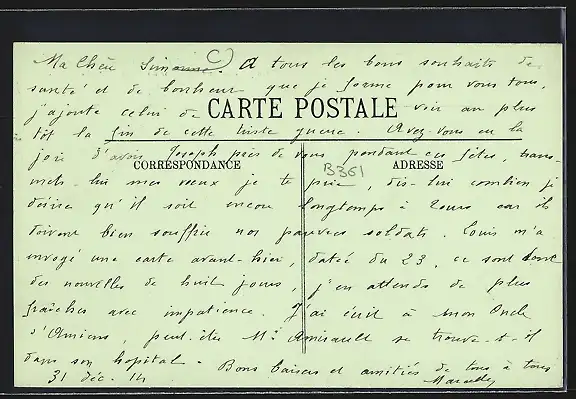 Ma Chère Simonne. A tous les bons souhaits de
santé et de bonheur que je forme pour vous tous,
j'ajoute celui de voir au plus
CARTE POSTALE
tôt la fin de cette triste guerre. Avez-vous eu la
joie d'avoir Joseph près de vous pendant ces fêtes, trans-
CORRESPONDANCE
B351
ADRESSE
mets-lui mes vœux je te prie, dis-lui combien je
désire qu'il soit encore longtemps à Tours car ils
doivent bien souffrir nos pauvres soldats. Louis m'a
envoyé une carte avant-hier, datée du 23, ce sont donc
des nouvelles de huit jours, j'en attends de plus
fraîches avec impatience. J'ai écrit à mon Oncle
d'Amiens, peut-être Mr. Amirault se trouve-t-il
dans son hopital. Bons baisers et amitiés de tous à tous
31 déc. 14